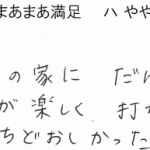 まあまあ満足 ハ やや
の家に だん
が楽しく 打
ちどおしかった